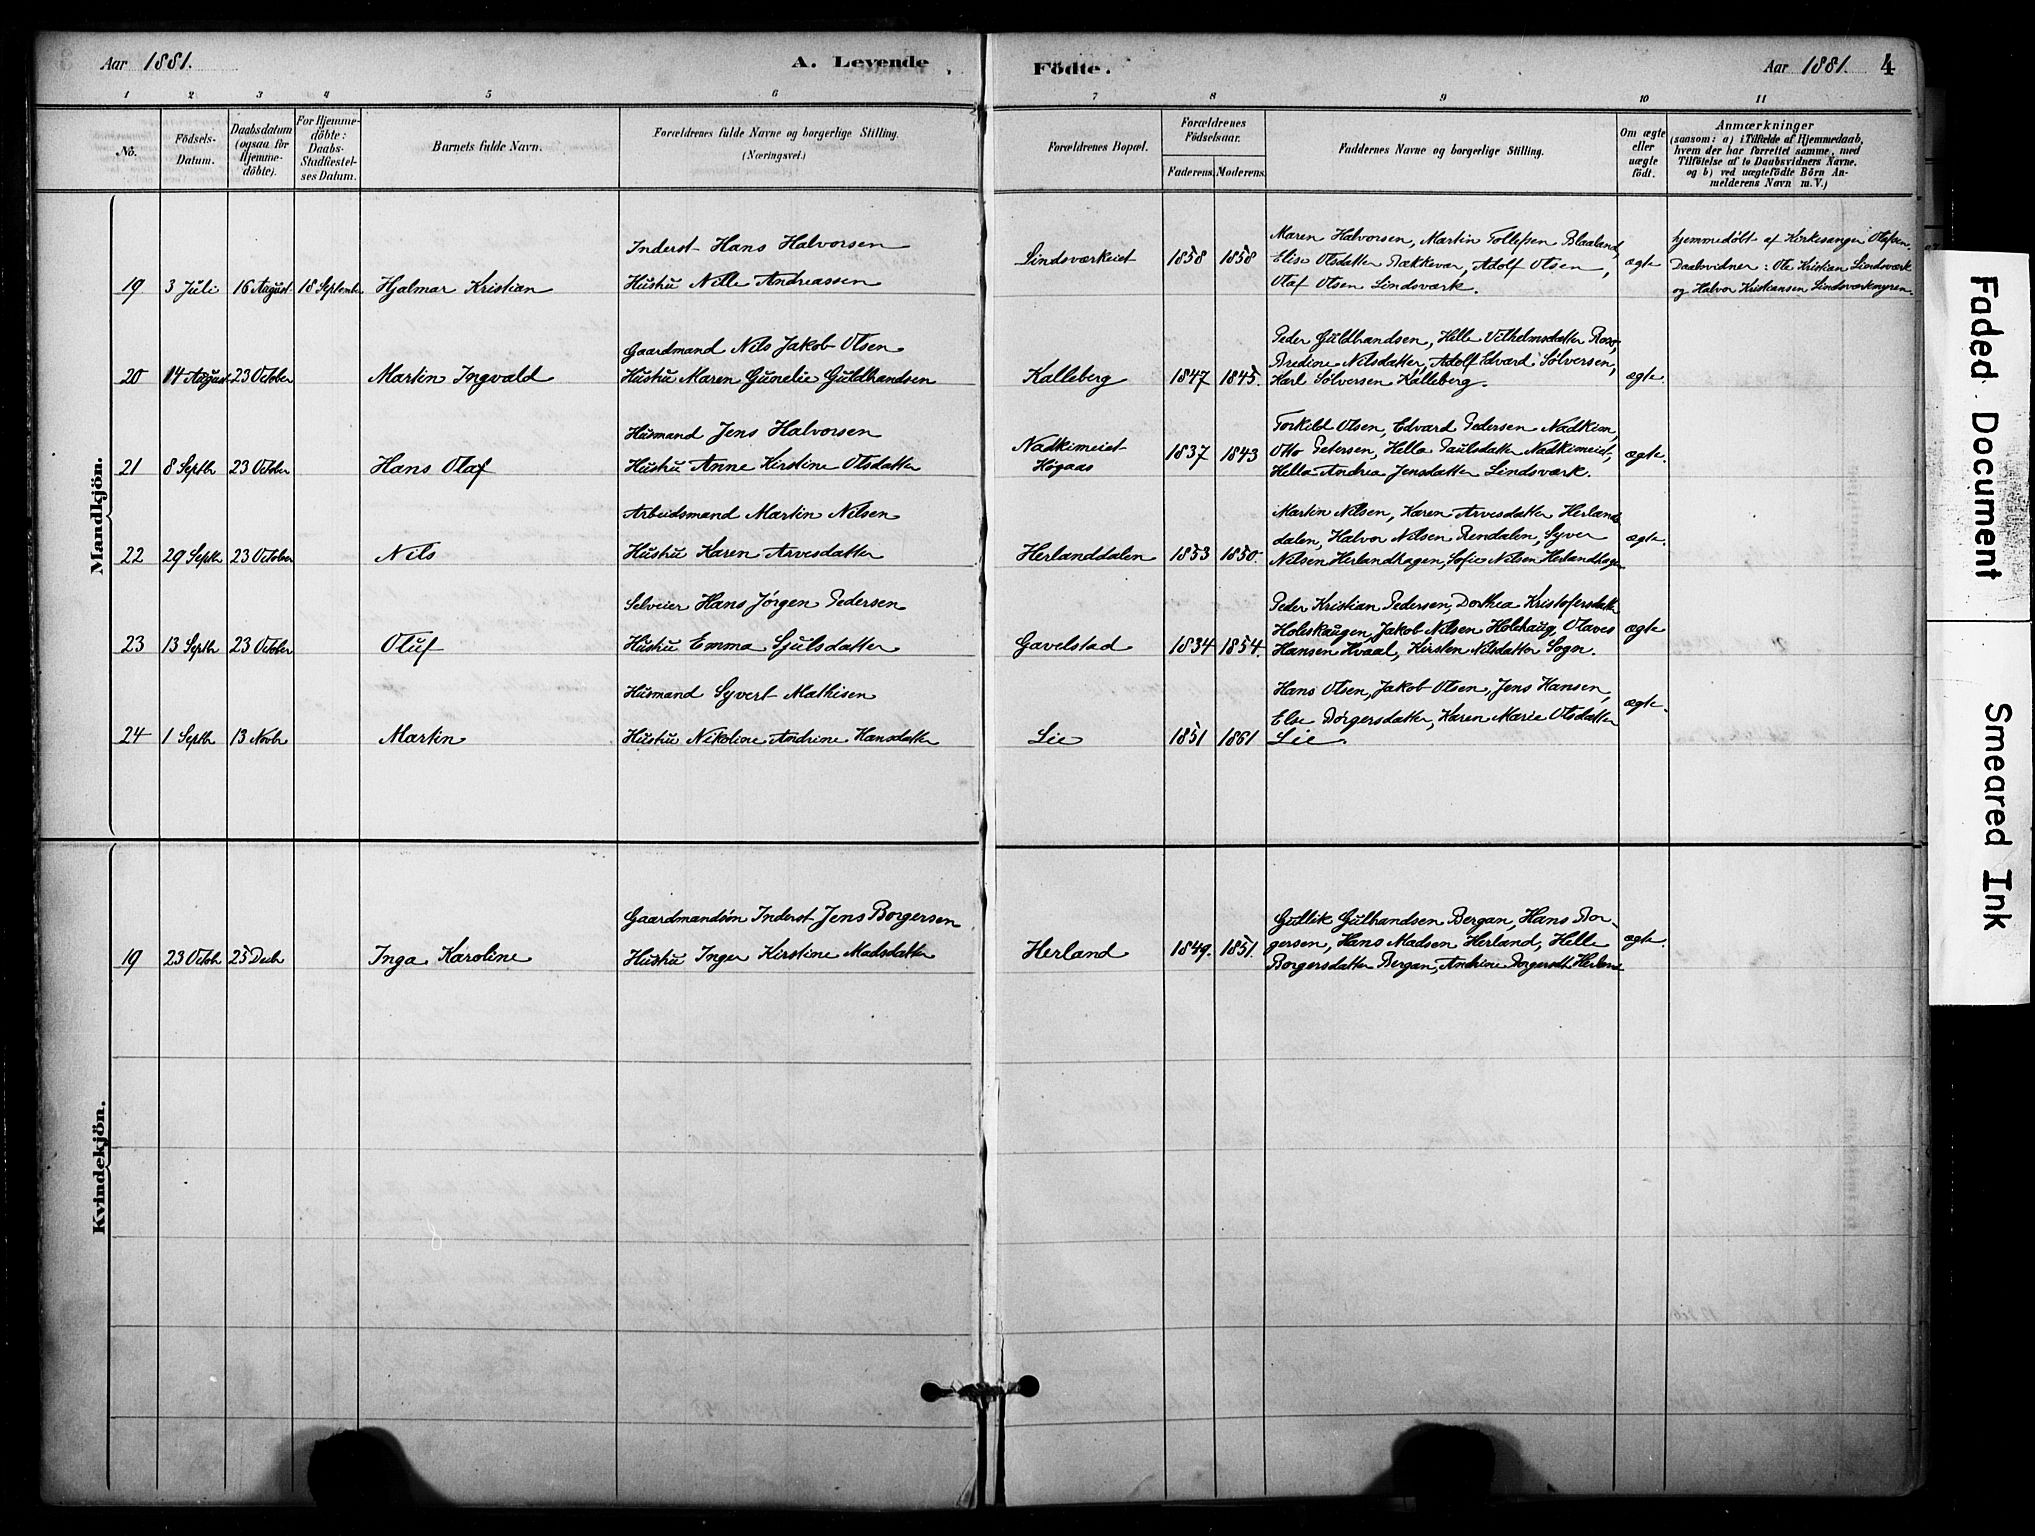 Aar 1881.
A. Levende
Födte.
Aar 1881.
4
1 2 3 4 5 6 7 8 9 10 11
No.
Födsels-
Datum.
Daabsdatum
(ogsaa for
Hjemme-
döbte).
For Hjemme-
döbte:
Daabs-
Stadfæstel-
ses Datum.
Barnets fulde Navn.
Forældrenes fulde Navne og borgerlige Stilling.
(Næringsvei.)
Forældrenes Bopæl.
Forældrenes
Födselsaar.
Faderens. Moderens.
Faddernes Navne og borgerlige Stilling.
Om ægte
eller
uægte
født.
Anmærkninger
(saasom: a) i Tilfælde af Hjemmedaab,
hvem der har forrettet samme, med
Tilföielse af to Daabsvidners Navne,
og b) ved uægtefödte Börn An-
melderens Navn m.V.)
Mandkjön.
19 3 Juli 16 August 18 Septembr Hjalmar Kristian
Inderst Hans Halvorsen
Hustru Nille Andreassen
Lindsværkeiet 1858 1858
Maren Halvorsen, Martin Tollefsen Blaaland,
Elise Olsdatter Bækkevar, Adolf Olsen,
Olaf Olsen Lindsværk.
ægte
hjemmedöbt af Kirkesanger Olafsen.
Daabsvidner: Ole Kristian Lindsværk
og Halvor Kristiansen Lindsværkmyren.
20 14 August 23 October Martin Ingvald
Gaardmand Nils Jakob Olsen
Hustru Maren Gunelie Guldbandsen
Kalleberg 1847 1845.
Peder Guldbrandsen, Helle Vilhelmsdatter
Bredine Nilsdatter, Adolf Edvard Sölversen,
Karl Sölversen Kalleberg.
ægte.
21 8 Septbr 23 October Hans Olaf
Husmand Jens Halvorsen
Hustru Anne Kirstine Olsdatter
Nadkimeiet
Högaas
1837 1843
Torkild Olsen, Edvard Pedersen Nadkim,
Otto Petersen, Hella Paulsdatter Nadkimeiet,
Hella Andrea Jensdatter Lindsværk.
ægte.
22 29 Septbr 23 October Nils
Arbeidsmand Martin Nilsen
Hustru Karen Arvesdatter
Herlanddalen 1853 1850.
Martin Nilsen, Karen Arvesdatter Herland-
dalen, Halvor Nilsen Rendalen, Syver
Nilsen Herlandhagen, Sofie Nilsen Herlandhagen
ægte.
23 13 Septbr 23 October Oluf
Selveier Hans Jörgen Pedersen
Hustru Emma Sjulsdatter
Gavelstad 1834 1854.
Peder Kristian Pedersen, Dorthea Kristofersdatter
Holeskaugen, Jakob Nilsen Holehaug, Olaves
Hansen Hvaal, Kirsten Nilsdatter Sogn.
ægte
24 1 Septbr 13 Novbr Martin
Husmand Syvert Mathisen
Hustru Nikoline Andrine Hansdatter
Lie 1851 1861
Hans Olsen, Jakob Olsen, Jens Hansen,
Else Börgersdatter, Karen Marie Olsdatter
Lie.
ægte.
Kvindekjön.
19 23 Octbr 25 Decbr Inga Karoline
Gaardmandsön Inderst Jens Borgersen
Hustru Inger Kirstine Madsdatter
Herland 1849. 1851.
Gullik Gulbrandsen Bergan, Hans Bor-
gersen, Hans Madsen Herland, Helle
Borgersdatter Bergan, Andrine Borgersdt Herland
ægte.
Faded Document
Smeared Ink